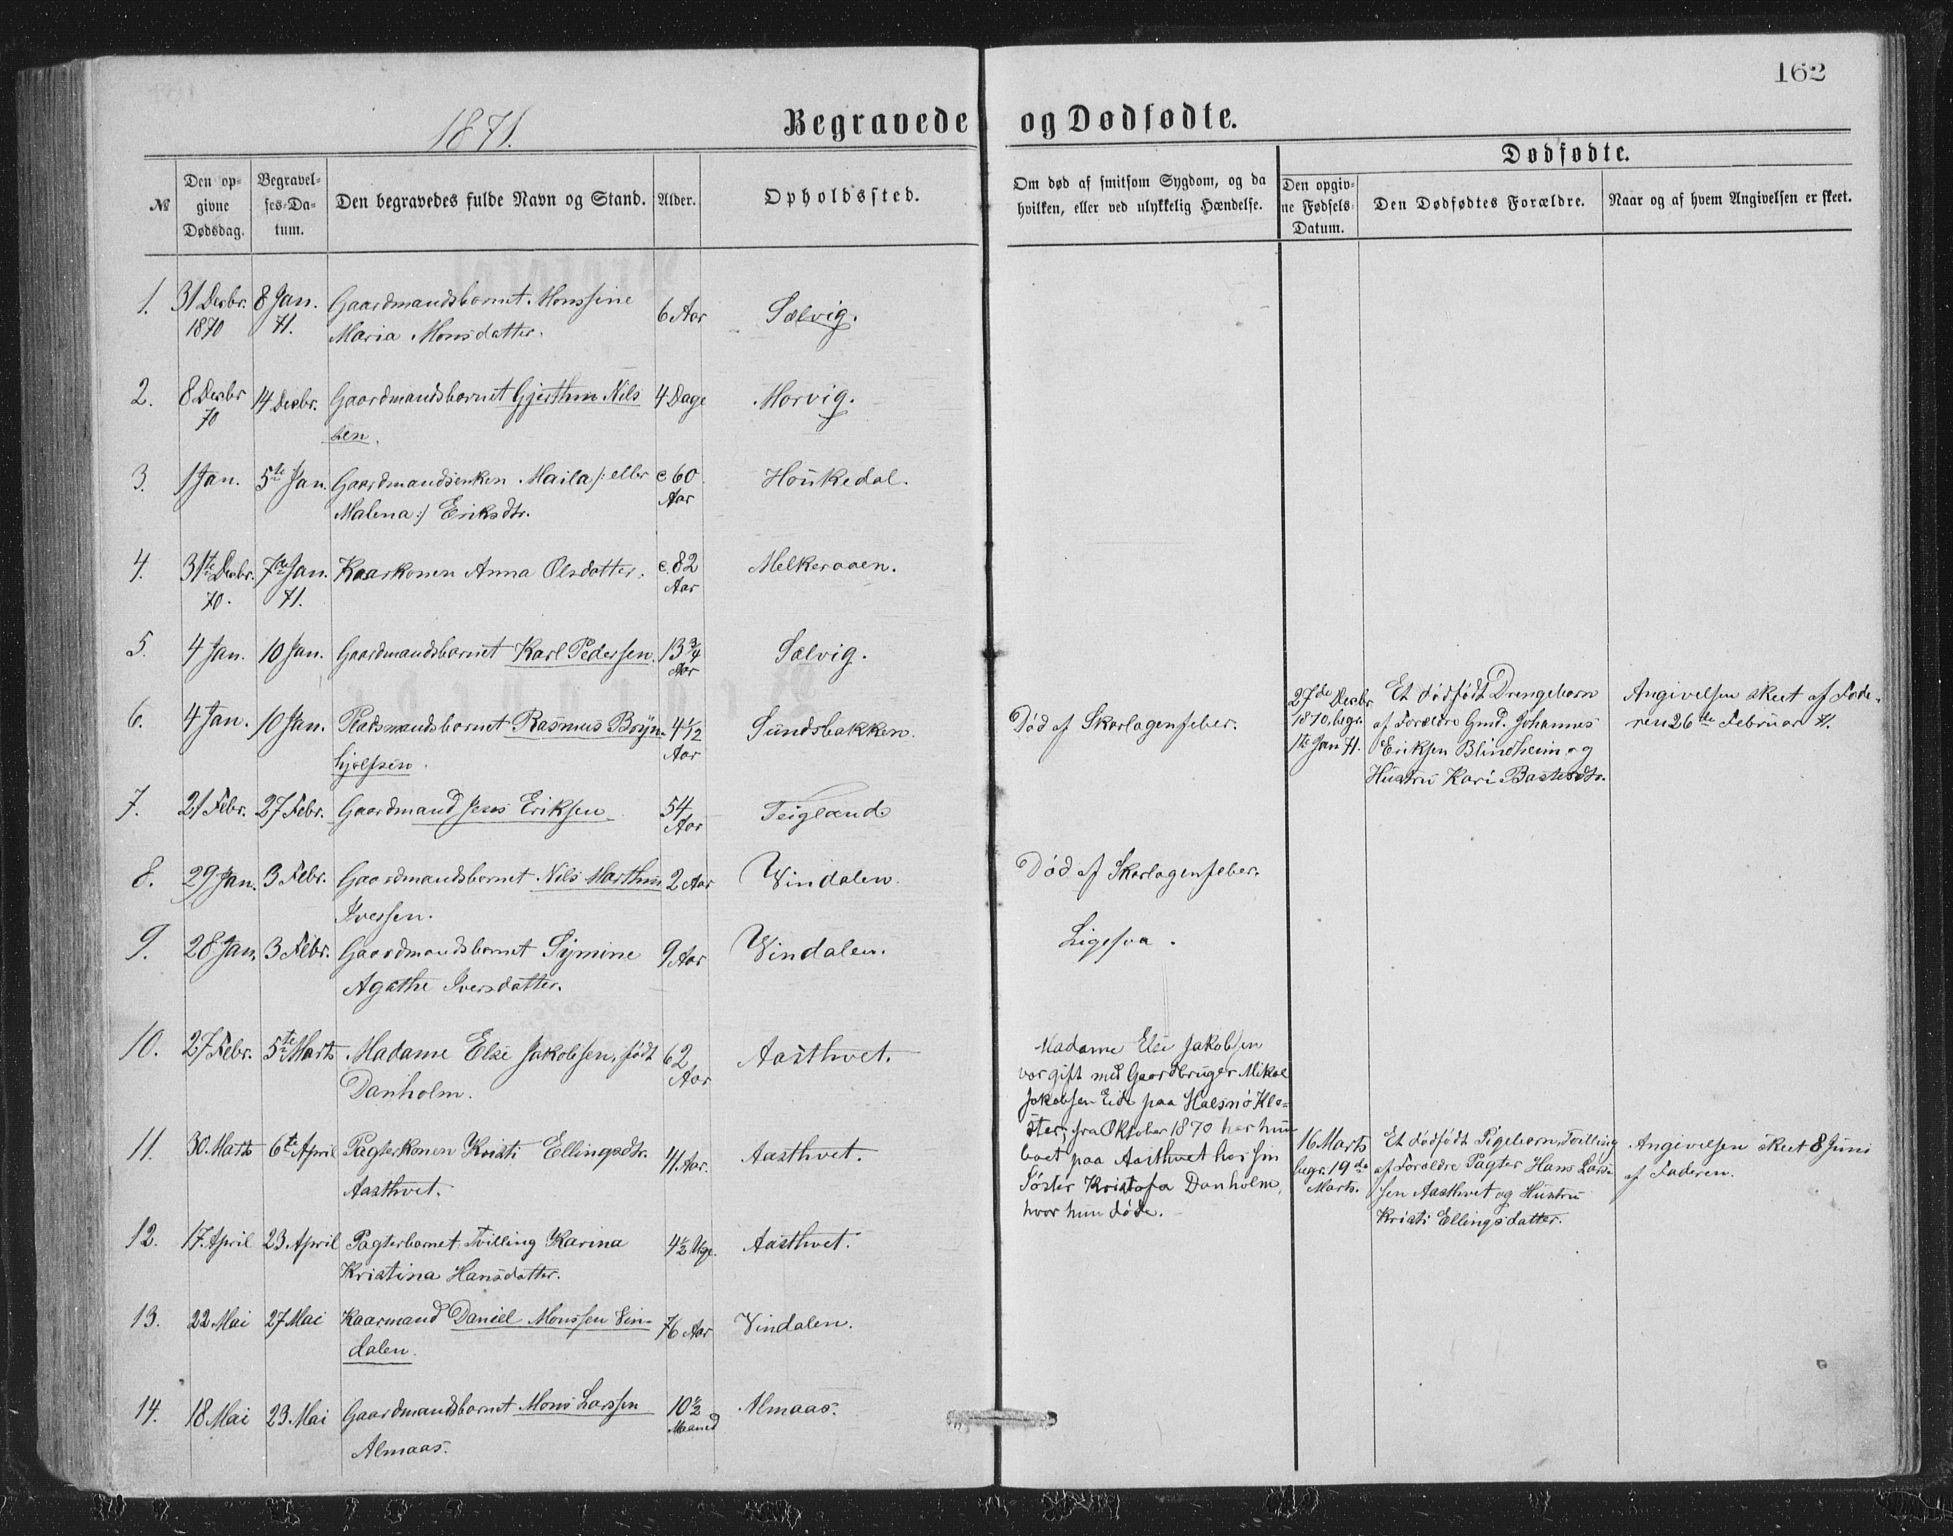 162
1871.
Begravede og Dødfødte.
Dødfødte.
№
Den op-
givne
Dødsdag.
Begravel-
ses-Da-
tum.
Den begravedes fulde Navn og Stand.
Alder.
Opholdssted.
Om død af smitsom Sygdom, og da
hvilken, eller ved ulykkelig Hændelse.
Den opgiv-
ne Fødsels-
Datum.
Den Dødfødtes Forældre.
Naar og af hvem Angivelsen er skeet.
1. 31 Decbr. 8 Jan. Gaardmandsbarnet Monsine 6 Aar Sælvig.
1870 71. Maria Monsdatter.
2. 8 Decbr 14 Decbr. Gaardmandsbarnet Gjerthm Nils 4 Dage Morvig.
70 sen.
3. 1 Jan. 5te Jan. Gaardmandsenken Maila /: eller c 60 Houkedal.
Malena :/ Eriksdtr. Aar
4. 31te Decbr. 7de Jan. Kaarkonen Anna Olsdatter. c. 82 Melkeraaen.
70. 71. Aar
5. 4 Jan. 10 Jan. Gaardmandsbarnet Karl Pedersen. 13 3/4 Sælvig.
Aar
6. 4 Jan. 10 Jan. Pladsmandsbarnet Rasmus Bryn- 4 1/2 Sundsbakken. Død af Skarlagensfeber.
hjolfsen. Aar
27de Decbr
1870, begr.
1te Jan 71.
Et dødfødt Drengebarn
af Forældre Gmd. Johannes
Eriksen Blindheim og
Hustru Kari Bastesdtr.
Angivelsen skeet af Fade-
ren 26te Februar 71.
7. 21 Febr. 27 Febr. Gaardmand Jens Eriksen 54 Teigland
Aar
8. 29 Jan. 3 Febr. Gaardmandsbarnet Nils Marthin 2 Aar Vindalen. Død af Skarlagensfeber.
Iversen.
9. 28 Jan. 3 Febr. Gaardmandsbarnet Symine 9 Aar Vindalen. Ligesaa.
Agathe Iversdatter.
10. 27 Febr. 5te Marts Madame Else Jakobsen, født 62 Aasthvet.
Danholm. Aar
Madame Else Jakobsen
var gift med Gaardbruger Mikal
Jakobsen Eide paa Halsnø Klo-
ster, fra Oktober 1870 har hun
boet paa Aasthvet hos sin
Søster Kristofa Danholm,
hvor hun døde.
11. 30. Marts 6te April Pagterkonen Kristi Ellingsdtr. 41 Aar. Aasthvet.
Aasthvet.
16 Marts
begr. 19de
Marts.
Et dødfødt Pigebarn, Tvilling
af Forældre Pagter Hans Lars-
sen Aasthvet og Hustru
Kristi Ellingsdatter.
Angivelsen skeet 8 Juni
af Faderen.
12. 17. April 23. April Pagterbarnet, Tvilling Karina 4 1/2 Uge. Aasthvet.
Kristina Hansdatter.
13. 22 Mai 27 Mai Kaarmand Daniel Monssen Vin- 76 Aar Vindalen.
dalen.
14. 18 Mai 23. Mai Gaardmandsbarnet Mons Larssen 10 1/2 Almaas.
Almaas. Maaned